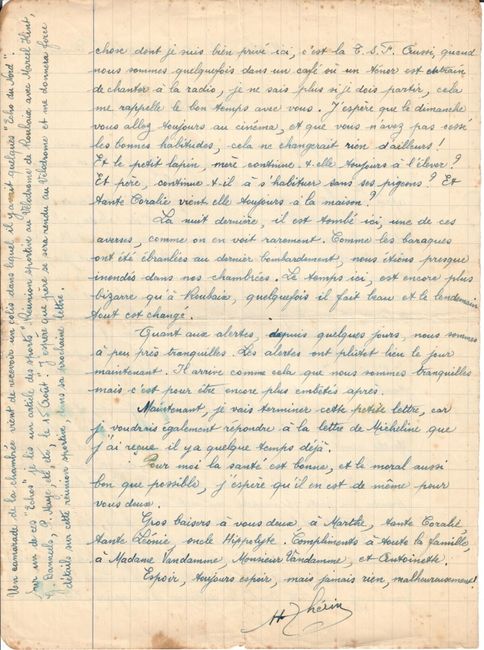 chose dont je suis bien privé ici, c'est la T.S.F. Aussi, quand
nous sommes quelquefois dans un café où un ténor est entrain
de chanter à la radio, je ne sais plus si je dois partir, cela
me rappelle le bon temps avec vous. J'espère que le dimanche
vous allez toujours au cinéma, et que vous n'avez pas cessé
les bonnes habitudes, cela ne changerait rien d'ailleurs!
Et le petit lapin, mère continue t-elle toujours à l'élever?
Et père, continue t-il à s'habituer sans ses pigeons? Et
tante Coralie vient elle toujours à la maison?
La nuit dernière, il est tombé ici, une de ces
averses, comme on en voit rarement. Comme les baraques
ont été ébranlées au dernier bombardement, nous étions presque
inondés dans nos chambrées. Le temps ici, est encore plus
bizarre qu'à Roubaix, quelquefois il fait beau et le lendemain
tout est changé.
Quant aux alertes, depuis quelques jours, nous sommes
à peu près tranquilles. Les alertes ont plutôt lieu le jour
maintenant. Il arrive comme cela que nous sommes tranquilles
mais c'est pour être encore plus embêtés après.
Maintenant, je vais terminer cette petite lettre, car
je voudrais également répondre à la lettre de Micheline que
j'ai reçue il y a quelque temps déjà.
Pour moi la santé est bonne, et le moral aussi
bon que possible, j'espère qu'il en est de même pour
vous deux.
Gros baisers à vous deux, à Marthe, tante Coralie,
tante Léonie, oncle Hippolyte. Compliments à toute la famille,
à Madame Vandamme, Monsieur Vandamme, et Antoinette.
Espoir, toujours espoir, mais jamais rien, malheureusement!
Un camarade de la chambrée vient de recevoir un colis dans lequel il y avait quelques "Echo du Nord".
sur un de ces "Echos" je lis un article des sports "Réunion sportive au Vélodrome de Roubaix avec Marcel
G. Danneels, P. Maye etc, etc, le 15 Août. J'espère que père se sera rendu au Vélodrome et me donnera force
détails sur cette réunion sportive, dans sa prochaine lettre.